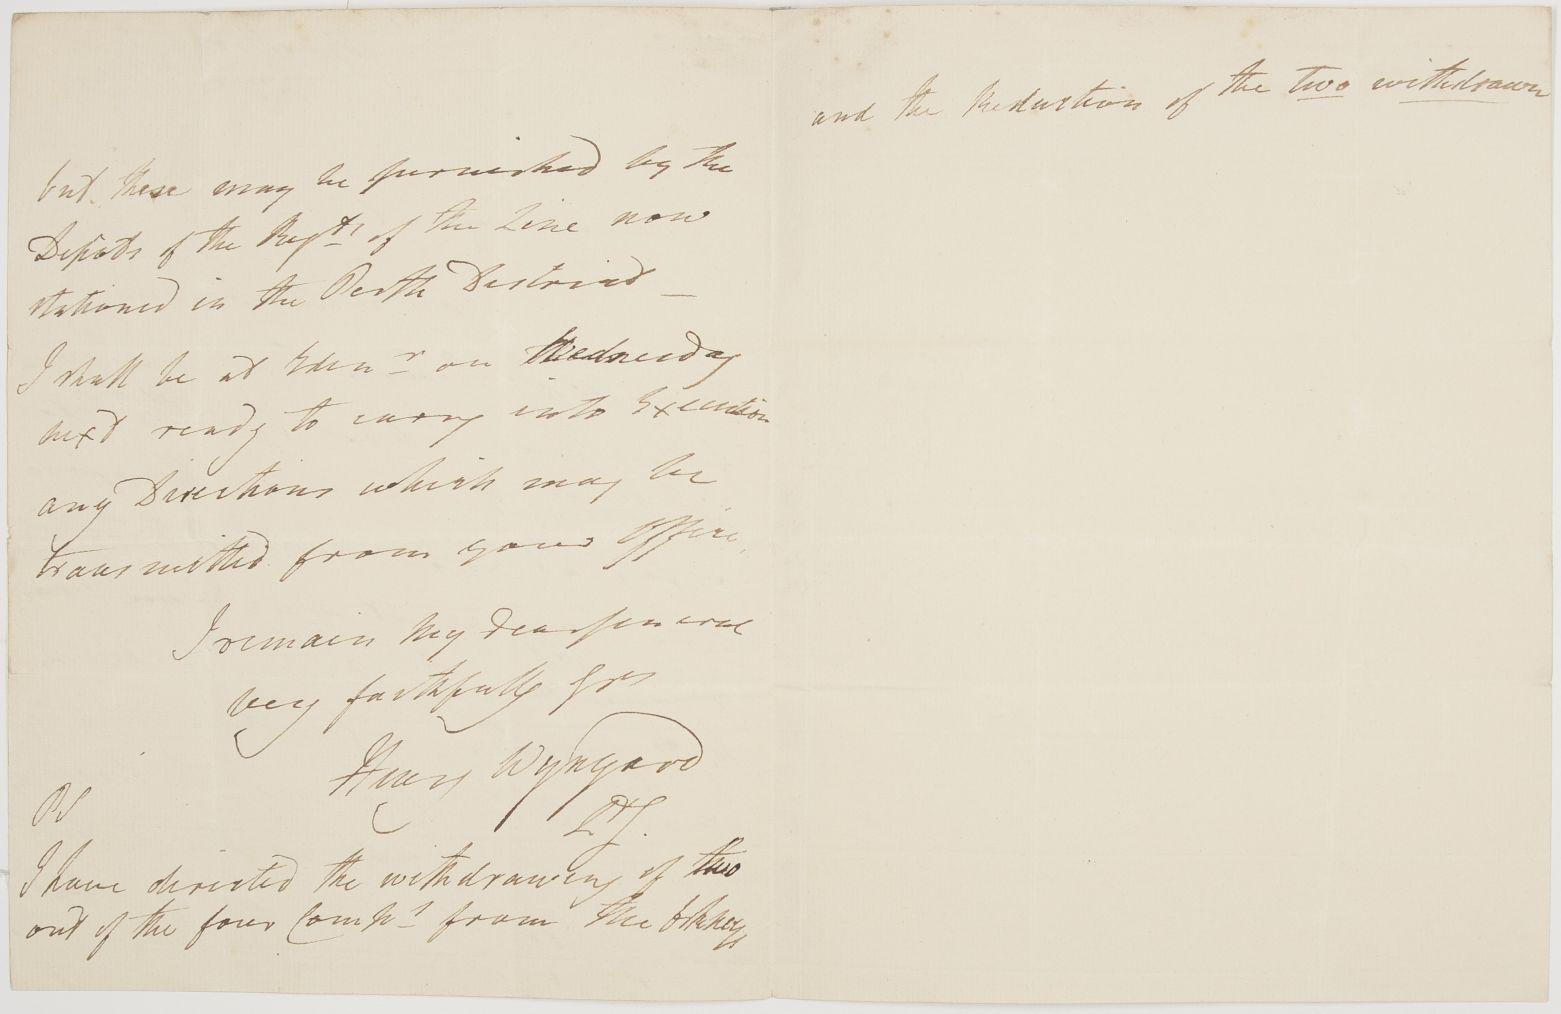 but these may be furnished by the
Depots of the Regts of the Line now
stationed in the Perth District _
I shall be at Edinr on Wednesday
next ready to carry into Execution
any Directions which may be
transmitted from your Office,
I remain My dear General
very faithfully Yrs
Henry Wynyard
LtG.
PS
I have directed the withdrawing of two
out of the four Compys from the Orkneys
and the Reduction of the two withdrawn